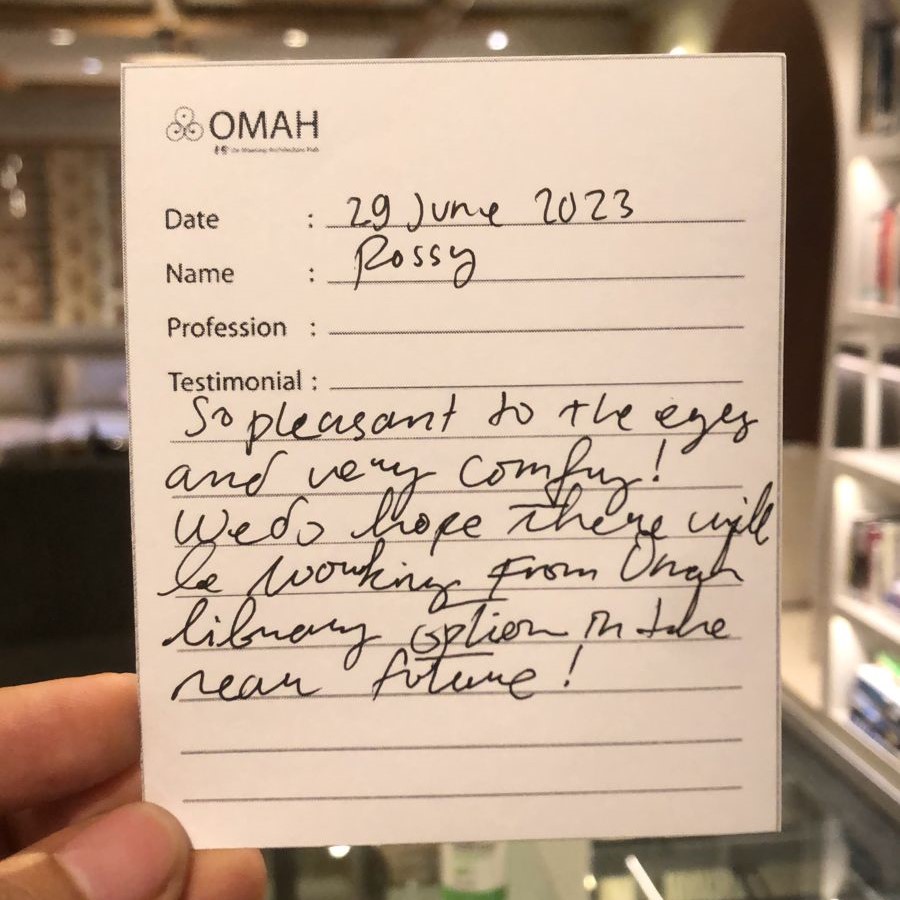 OMAH
Date : 29 June 2023
Name : Rossy
Profession :
Testimonial :
So pleasant to the eyes
and very comfy!
We do hope there will
be working from Omah
library option in the
near future!